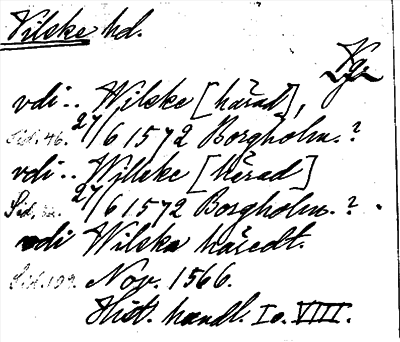 Vilske hd.
Vg.
vdi.. Wilske [härad],
Sid. 46. 27/6 1572 Borgholm.?
vdi.. Willske [härad]
Sid. 27/6 1572 Borgholm.?
vdi Wilska häredt.
Sid. 109. Nov. 1566.
Hist. handl. Io. VIII.